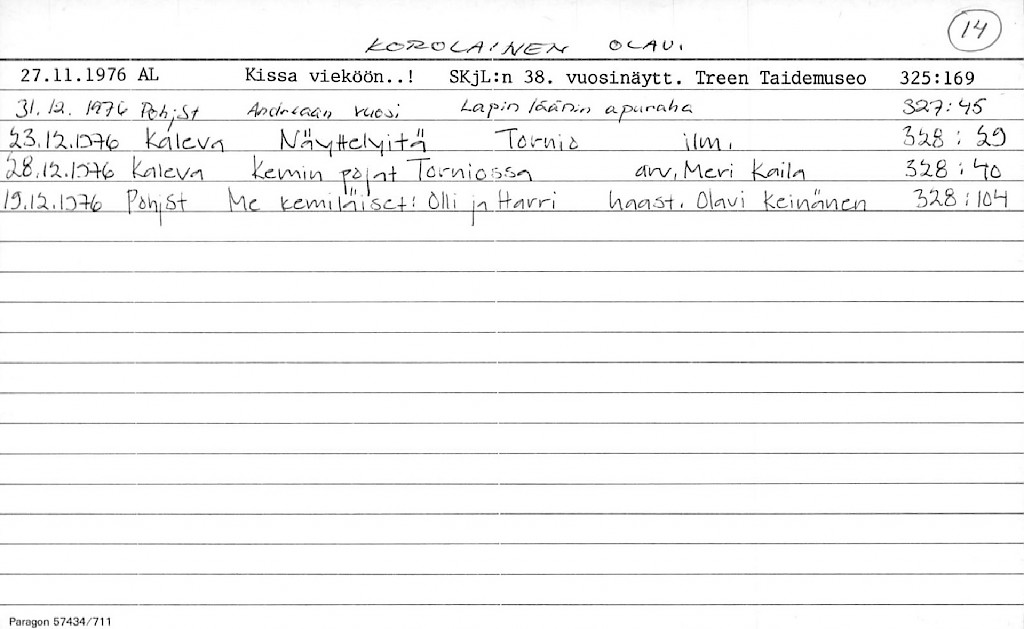 14
KOROLAINEN OLAVI
27.11.1976 AL Kissa vieköön..! SKjL:n 38. vuosinäytt. Treen Taidemuseo 325:169
31.12.1976 PohjSt vuosi Lapin läänin apuraha 327:45
23.12.1976 Kaleva Näyttelyitä Tornio ilm. 328:29
28.12.1976 Kaleva Kemin pojat Torniossa arv. Meri Kaila 328:40
19.12.1976 PohjSt Me kemiläiset: Olli ja Harri haast. Olavi Keinänen 328:104
Paragon 57434/711